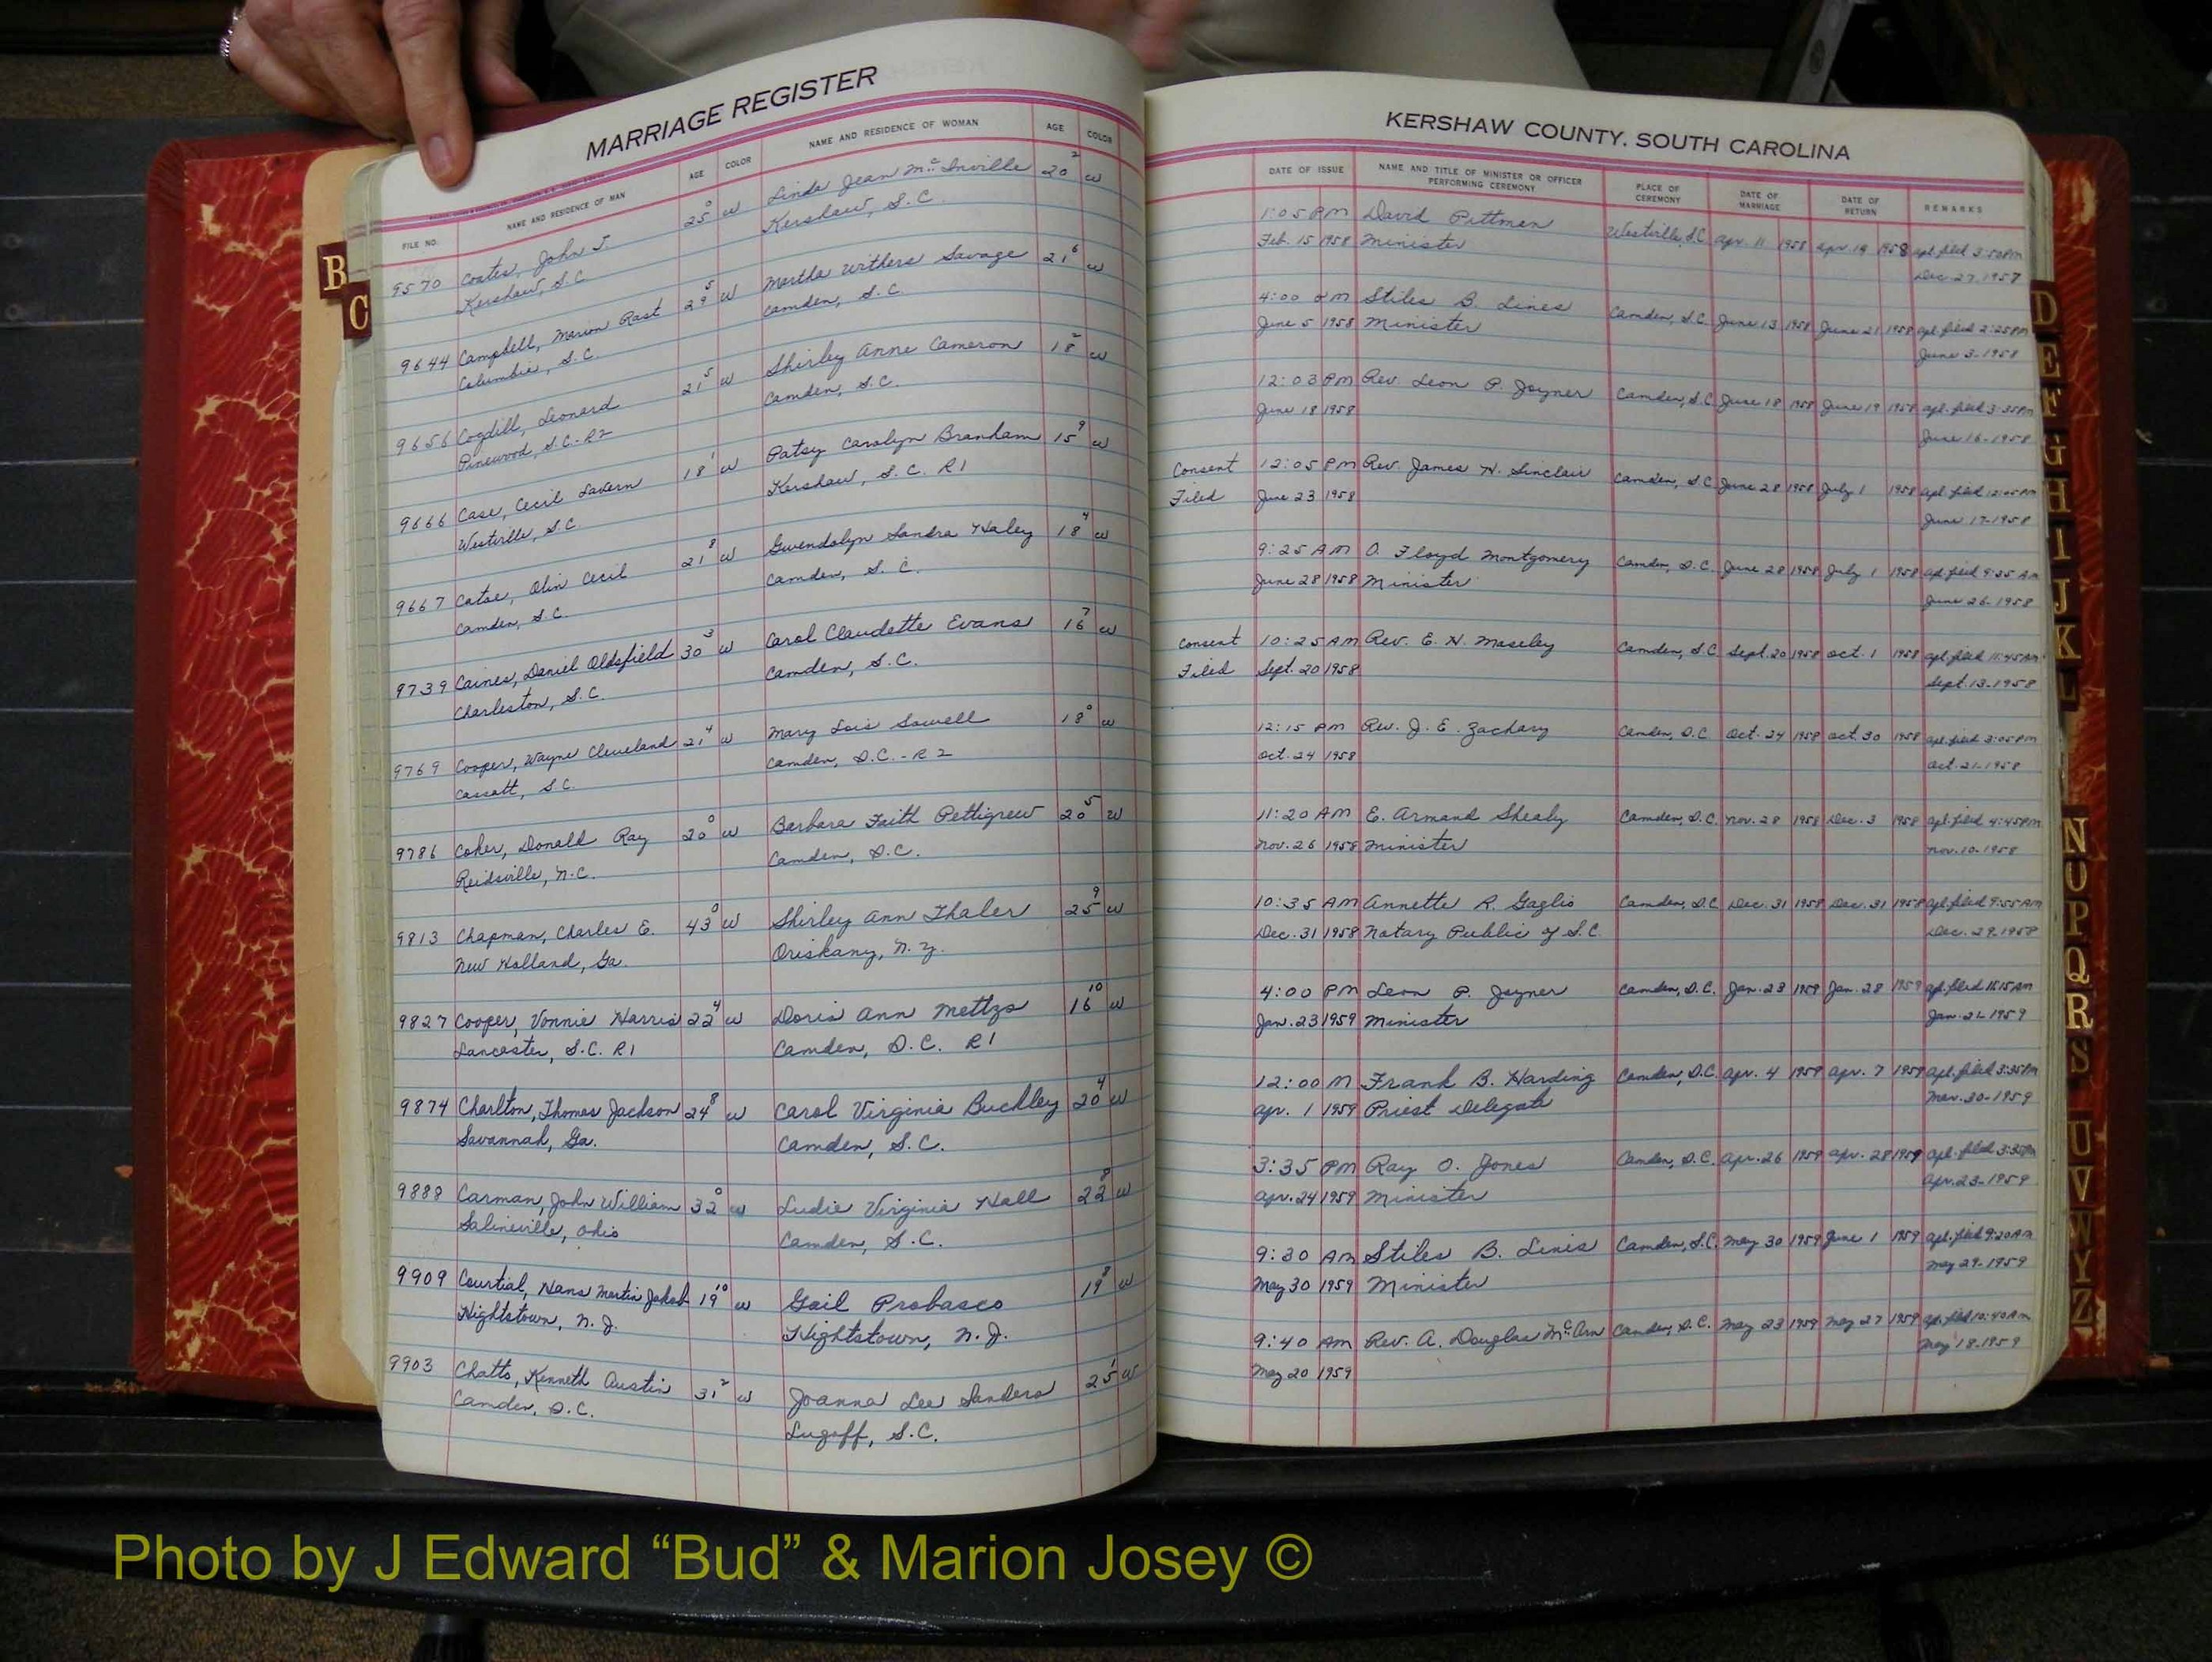 MARRIAGE REGISTER
FILE NO.
NAME AND RESIDENCE OF MAN
AGE
COLOR
NAME AND RESIDENCE OF WOMAN
AGE
COLOR
9570 Coates, John J. 25 0 w Linda Jean McInville 20 2 w
Kershaw, S.C. Kershaw, S.C.
9644 Campbell, Marion Rast 29 5 w Martha Withers Savage 21 6 w
Columbia, S.C. Camden, S.C.
9656 Cogdill, Leonard 21 5 w Shirley Anne Cameron 18 2 w
Pinewood, S.C.-R2 Camden, S.C.
9666 Case, Cecil Lavern 18 1 w Patsy Carolyn Branham 15 9 w
Westville, S.C. Kershaw, S.C. R1
9667 Catoe, Olin Cecil 21 8 w Gwendolyn Sandra Haley 18 4 w
Camden, S.C. Camden, S.C.
9739 Caines, Daniel Oldsfield 30 3 w Carol Claudette Evans 16 7 w
Charleston, S.C. Camden, S.C.
9769 Cooper, Wayne Cleveland 21 4 w Mary Lois Sowell 18 0 w
Cassatt, S.C. Camden, S.C.-R2
9786 Coker, Donald Ray 20 0 w Barbara Faith Pettigrew 20 5 w
Reidsville, N.C. Camden, S.C.
9813 Chapman, Charles E. 43 0 w Shirley Ann Thaler 25 9 w
New Holland, Ga. Oriskany, N.Y.
9827 Cooper, Vonnie Harris 22 4 w Doris Ann Mettzs 16 10 w
Lancaster, S.C. R1 Camden, S.C. R1
9874 Charlton, Thomas Jackson 24 8 w Carol Virginia Buckley 20 4 w
Savannah, Ga. Camden, S.C.
9888 Carman, John William 32 0 w Ludie Virginia Hall 22 8 w
Salineville, Ohio Camden, S.C.
9909 Courtial, Hans Martin Jakob 19 10 w Gail Probasco 19 8 w
Hightstown, N.J. Hightstown, N.J.
9903 Chatto, Kenneth Austin 31 2 w Joanna Lee Sanders 25 1 w
Camden, S.C. Lugoff, S.C.
KERSHAW COUNTY, SOUTH CAROLINA
DATE OF ISSUE
NAME AND TITLE OF MINISTER OR OFFICER
PERFORMING CEREMONY
PLACE OF
CEREMONY
DATE OF
MARRIAGE
DATE OF
RETURN
REMARKS
1:05 PM David Pittman Westville, S.C. Apr. 11 1958 Apr. 19 1958 apl. filed 3:50PM
Feb. 15 1958 Minister Dec. 27-1957
4:00 PM Stiles B. Lines Camden, S.C. June 13 1958 June 21 1958 apl. filed 2:25PM
June 5 1958 Minister June 3-1958
12:03 PM Rev. Leon P. Joyner Camden, S.C. June 18 1958 June 19 1958 apl. filed 3:35PM
June 18 1958 June 16-1958
Consent 12:05 PM Rev. James H. Sinclair Camden, S.C. June 28 1958 July 1 1958 apl. filed 12:05PM
Filed June 23 1958 June 17-1958
9:25 AM O. Floyd Montgomery Camden, S.C. June 28 1958 July 1 1958 apl. filed 9:25 AM
June 28 1958 Minister June 26-1958
Consent 10:25 AM Rev. E. H. Moseley Camden, S.C. Sept. 20 1958 Oct. 1 1958 apl. filed 11:45AM
Filed Sept. 20 1958 Sept. 13-1958
12:15 PM Rev. J. E. Zachary Camden, S.C. Oct. 24 1958 Oct. 30 1958 apl. filed 3:05PM
Oct. 24 1958 Oct. 21-1958
11:20 AM E. Armand Shealy Camden, S.C. Nov. 28 1958 Dec. 3 1958 apl. filed 4:45PM
Nov. 26 1958 Minister Nov. 10-1958
10:35 AM Annette R. Gaglio Camden, S.C. Dec. 31 1958 Dec. 31 1958 apl. filed 9:55AM
Dec. 31 1958 Notary Public of S.C. Dec. 29-1958
4:00 PM Leon P. Joyner Camden, S.C. Jan. 23 1959 Jan. 28 1959 apl. filed 11:15AM
Jan. 23 1959 Minister Jan. 21-1959
12:00 M Frank B. Harding Camden, S.C. Apr. 4 1959 Apr. 7 1959 apl. filed 3:35PM
Apr. 1 1959 Priest Delegate Mar. 30-1959
3:35 PM Ray O. Jones Camden, S.C. Apr. 26 1959 Apr. 28 1959 apl. filed 3:30PM
Apr. 24 1959 Minister Apr. 23-1959
9:30 AM Stiles B. Lines Camden, S.C. May 30 1959 June 1 1959 apl. filed 9:20AM
May 30 1959 Minister May 29-1959
9:40 AM Rev. A. Douglas McArn Camden, S.C. May 23 1959 May 27 1959 apl. filed 10:40AM
May 20 1959 May 18-1959
B
C
D
E
F
G
H
I
J
K
L
N
O
P
Q
R
S
U
V
W
Y
Z
Photo by J Edward “Bud” & Marion Josey ©